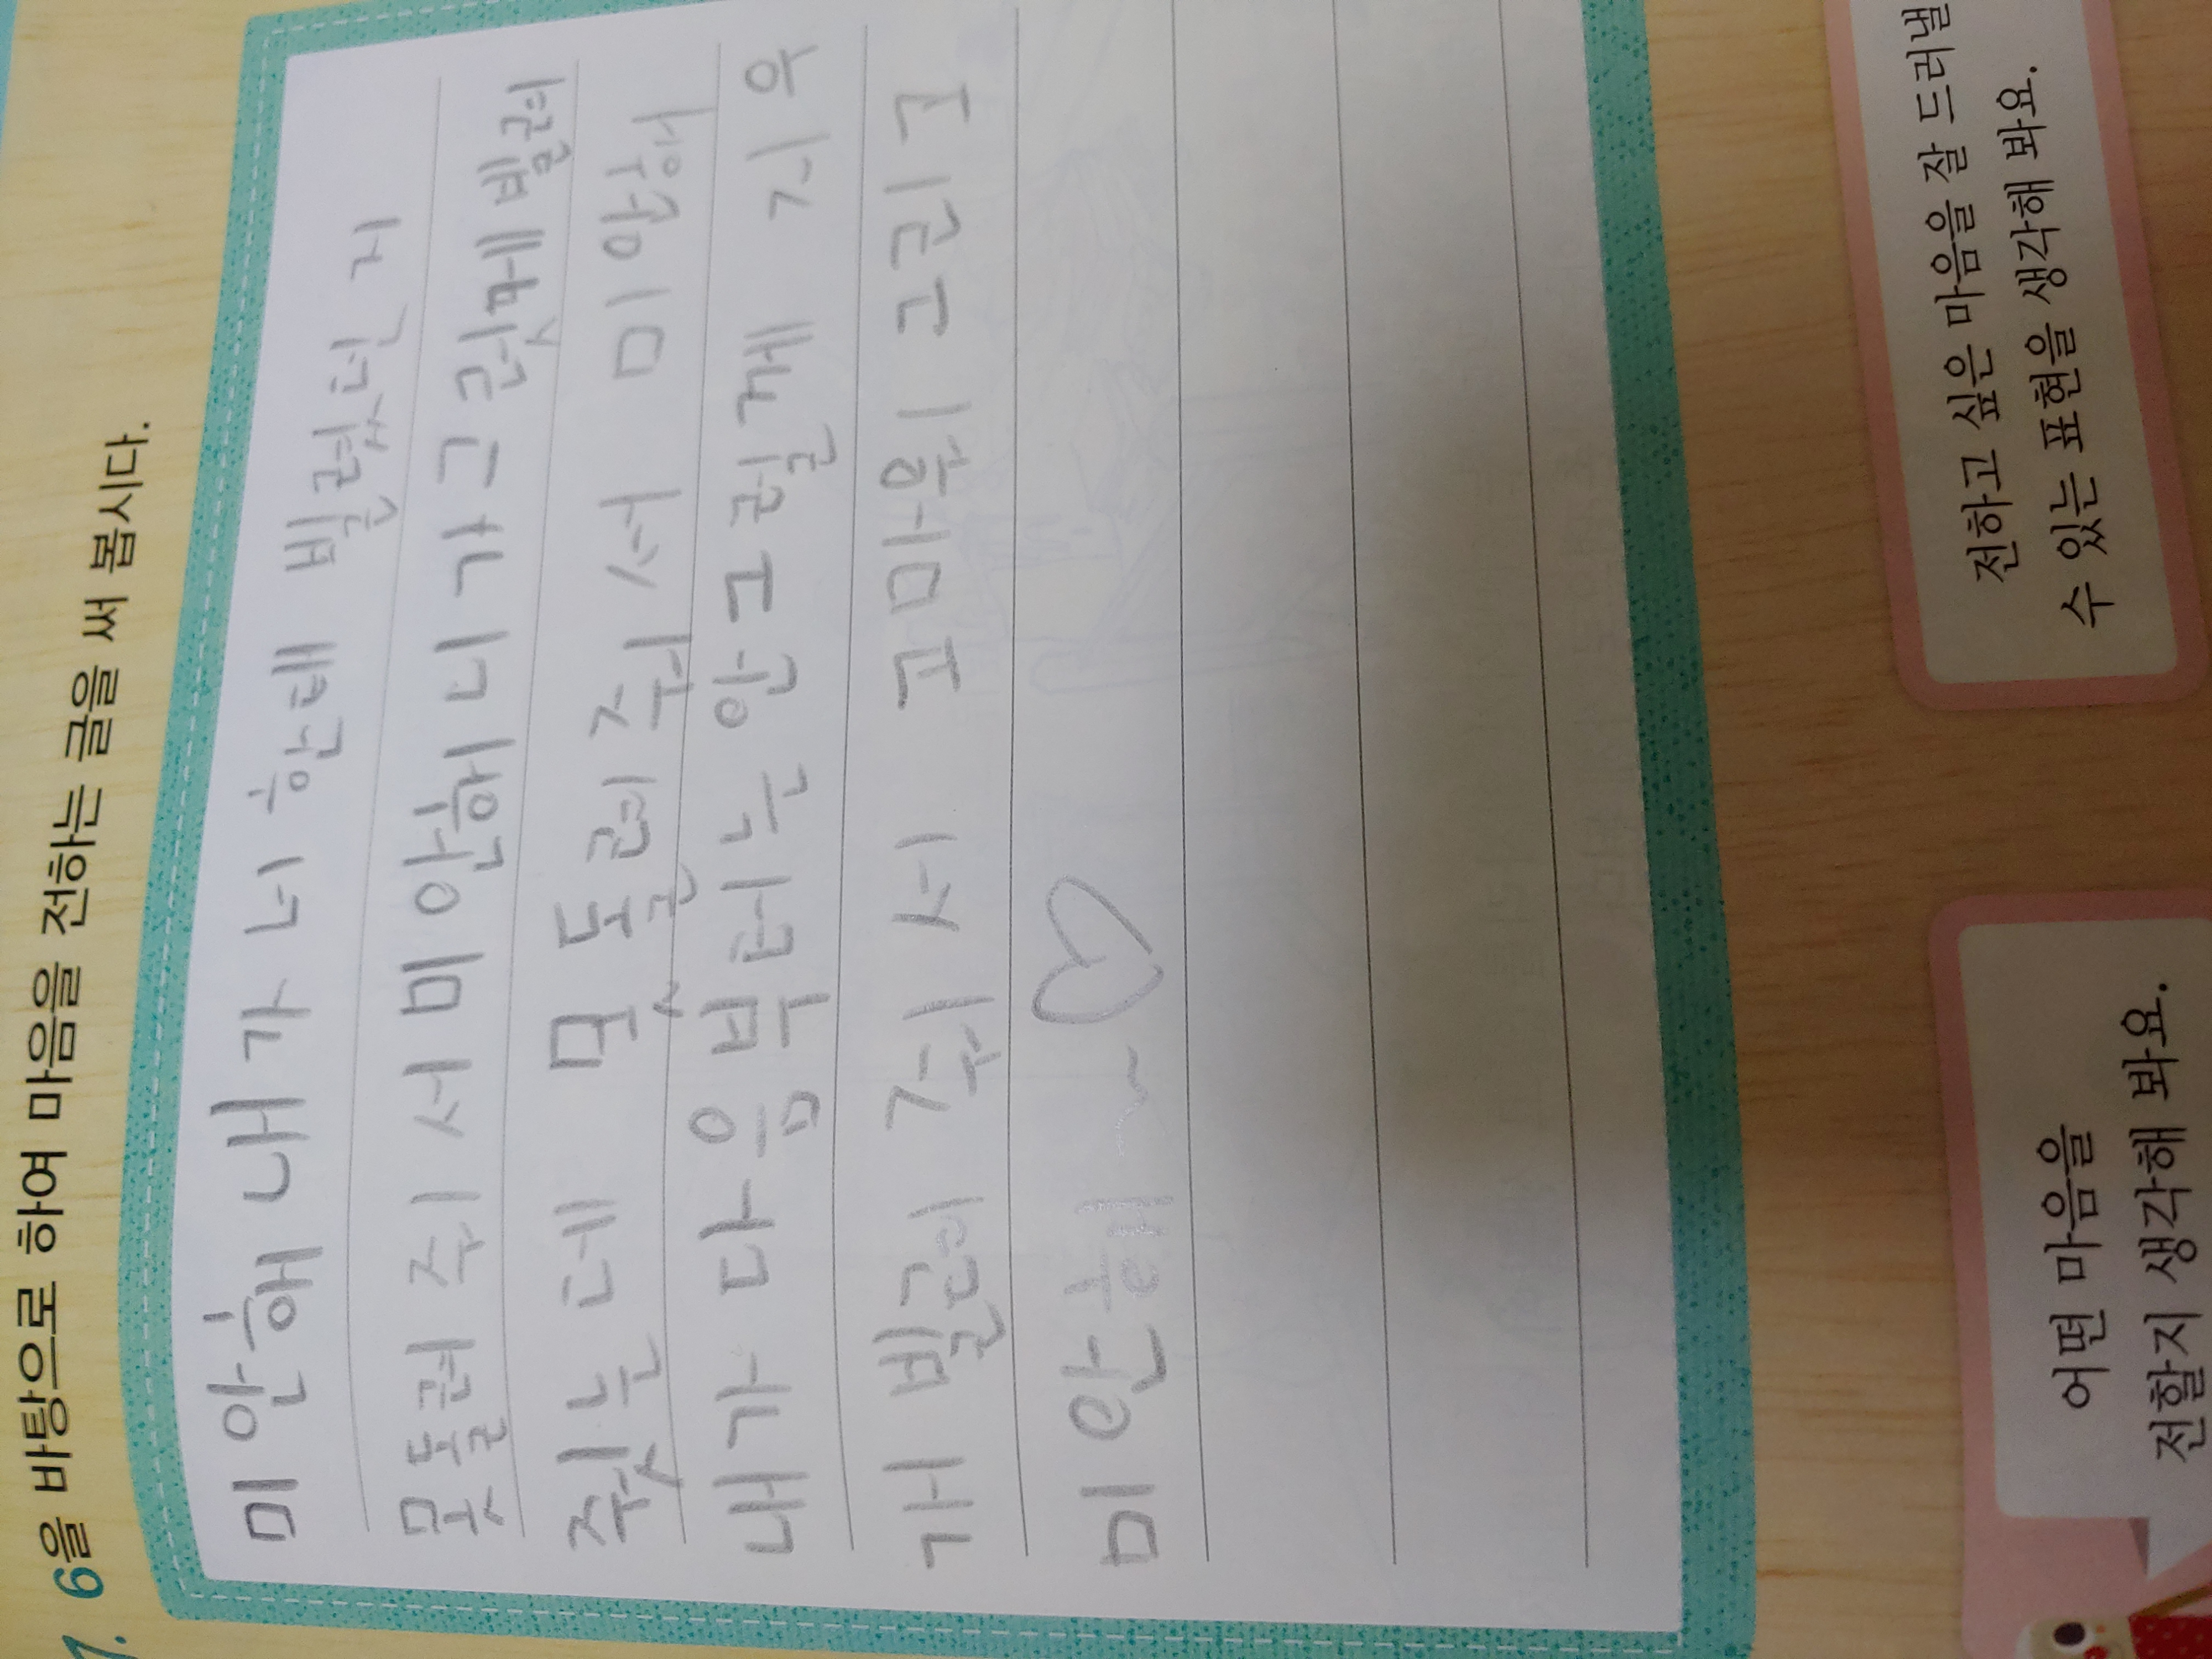 7. 6을 바탕으로 하여 마음을 전하는 글을 써 봅시다.
미안해 내가 너 한태 빌렸던 지
못돌려 주서 미안하니가 그렇게 빌려
줬는데 못돌려줘서 미안해
내가 다음부터는 안그럴게 지우
개 빌려줘서 고마워 그리고
미안해~♡
어떤 마음을
전할지 생각해 봐요.
전하고 싶은 마음을 잘 드러낼
수 있는 표현을 생각해 봐요.